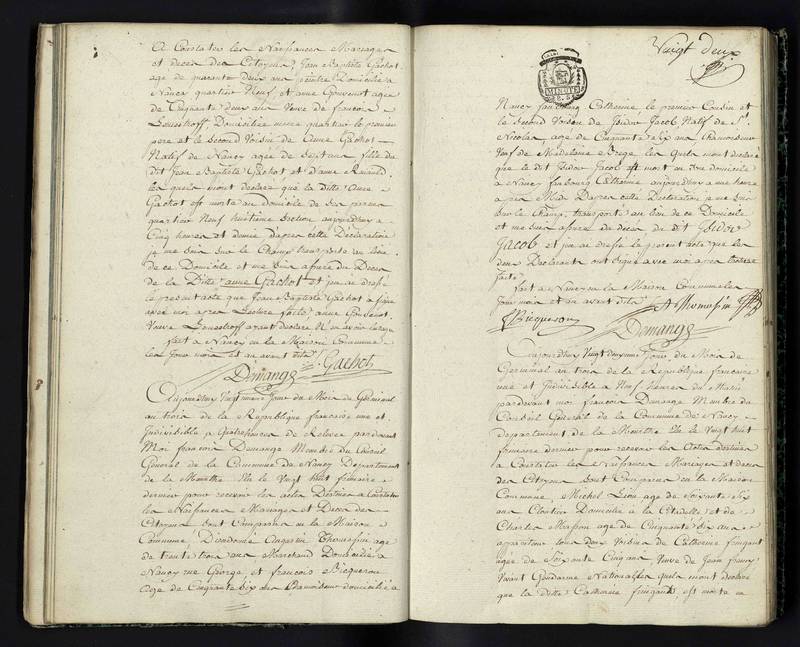 A Constater les Naissances Mariages
et deces des Citoyens, Jean Baptiste Gachot
age de quarante deux ans peintre Domicilié a
Nancy quartier Neuf et anne Gouvenot agee
de Cinquante deux ans Veuve de francois
Domiciliée meme quartier le premier
pere et le second Voisin de Anne Gachot
Natif de Nancy agee de Sept ans fille du
dit Jean Baptiste Gachot et d'anne
les quels mont declaré que la ditte Anne
Gachot est morte au domicile de ses peres
quartier Neuf huitieme Section aujourdhuy a
Cinq heures et demie d'apres cette Déclaration
je me suis sur le Champ transporté au lieu
de ce Domicile et me suis assuré du Deces
de la Ditte anne Gachot et jen ai dressé
le present acte que Jean Baptiste Gachot a signé
avec moi apres Lecture faitte, anne Gouvenot
Veuve ayant declaré N'en avoir lusage
fait a Nancy en la Maison Commune
les Jour mois et an avant dits
Demange Gachot
Aujourdhuy Vingt unieme Jour du Mois de Germinal
au trois de la Republique francaise une et
Indivisible a quatre heures de Relevée pardevant
Moi francois Demange Membre du Conseil
General de la Commune de Nancy Departement
de la Meurthe Elu le Vingt huit frimaire
dernier pour recevoir les actes Destinés a Constater
les Naissances Mariages et Deces des
Citoyens sont Comparus en la Maison
Commune, Dieudonné Augustin Thomassin age
de trente trois ans Marchand Domicilié a
Nancy rue George et francois Bicquerou
age de Cinquante Six ans Chamoiseur domicilié a
Vingt deux
MINUTE
Nancy faubourg Catherine le premier Cousin et
le Second Voisin de Isidor Jacob Natif de St
Nicolas, age de Cinquante Six ans Chamoiseur
Veuf de Madelaine les quels mont declaré
que le dit Isidor Jacob est mort au dit domicile
a Nancy faubourg Catherine aujourdhuy a une heure
apres Midi Dapres cette Declaration je me suis
sur le Champ transporté au lieu de ce Domicile
et me suis assuré du deces du dit Isidor
Jacob et jen ai dressé le present acte que les
deux Declarants ont signé avec moi apres lecture
faite
fait a Nancy en la Maison Commune les
Jour mois et an avant dits
Bicquerou Demange
Aujourdhuy Vingt deuxieme Jour du Mois de
Germinal au trois de la Republique francaise
une et Indivisible a Neuf heures du Matin
pardevant moi francois Demange Membre du
Conseil General de la Commune de Nancy
departement de la Meurthe Elu le Vingt huit
frimaire dernier pour recevoir les Actes destinés
a Constater les Naissances Mariages et deces
des Citoyens sont Comparus en la Maison
Commune, Michel Lion age de Soixante Six
ans Cloutier Domicilié a la Citadelle et de
Charles Masson age de Cinquante Six ans
appariteur tous deux Voisins de Catherine
agée de Soixante Cinq ans, Veuve de Jean
Vivant Gendarme National les quels mont declaré
que la ditte Catherine est morte en